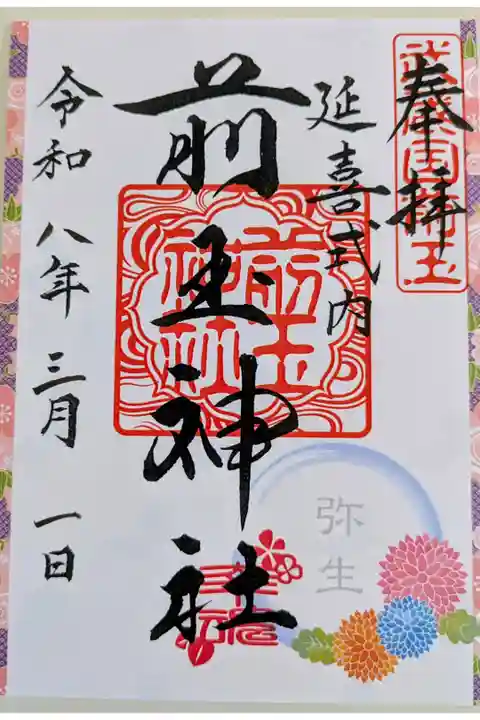 奉拝
延喜式内
前玉神社
令和八年三月一日
前玉
神社
弥生